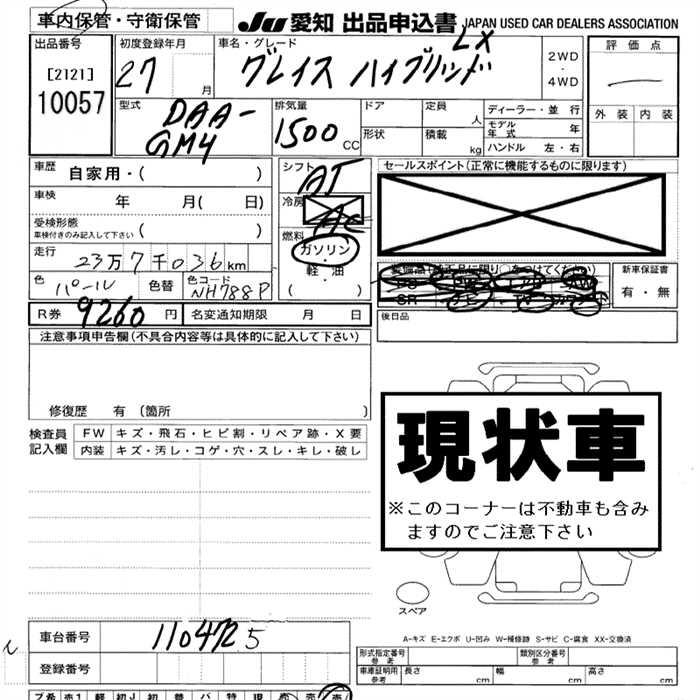 車内保管・守衛保管
JU 愛知 出品申込書 JAPAN USED CAR DEALERS ASSOCIATION
出品番号 初度登録年月 車名・グレード
[2121] 10057
27 月
グレイス ハイブリッド LX
2WD ・ 4WD
評価点
外装 内装
型式 DAA-GM4
排気量 1500 CC
ドア 定員 人
形状 積載 kg
ディーラー・並 行
モデル年式 年
ハンドル 左・右
車歴 自家用・( )
車検 年 月( 日)
受検形態 車検付きのみ記入して下さい ( )
走行 23万7千036km
色 パール 色替 色コード NH788P
シフト AT
冷房 AC
燃料 ガソリン ・ 軽・油 ( )
セールスポイント(正常に機能するものに限ります)
新車保証書
有・無
R券 9260 円 名変通知期限 月 日
後日品
注意事項申告欄(不具合内容等は具体的に記入して下さい)
修復歴 有(箇所 )
検査員記入欄 FW キズ・飛石・ヒビ割・リペア跡・X要
内装 キズ・汚レ・コゲ・穴・スレ・キレ・破レ
現状車
※このコーナーは不動車も含み
ますのでご注意下さい
スペア
A-キズ E-エクボ U-凹み W-補修跡 S-サビ C-腐食 XX-交換済
車台番号 1104725
登録番号
形式指定番号 参考 類別区分番号 参考
車庫証明用 参考 長さ cm 幅 cm 高さ cm